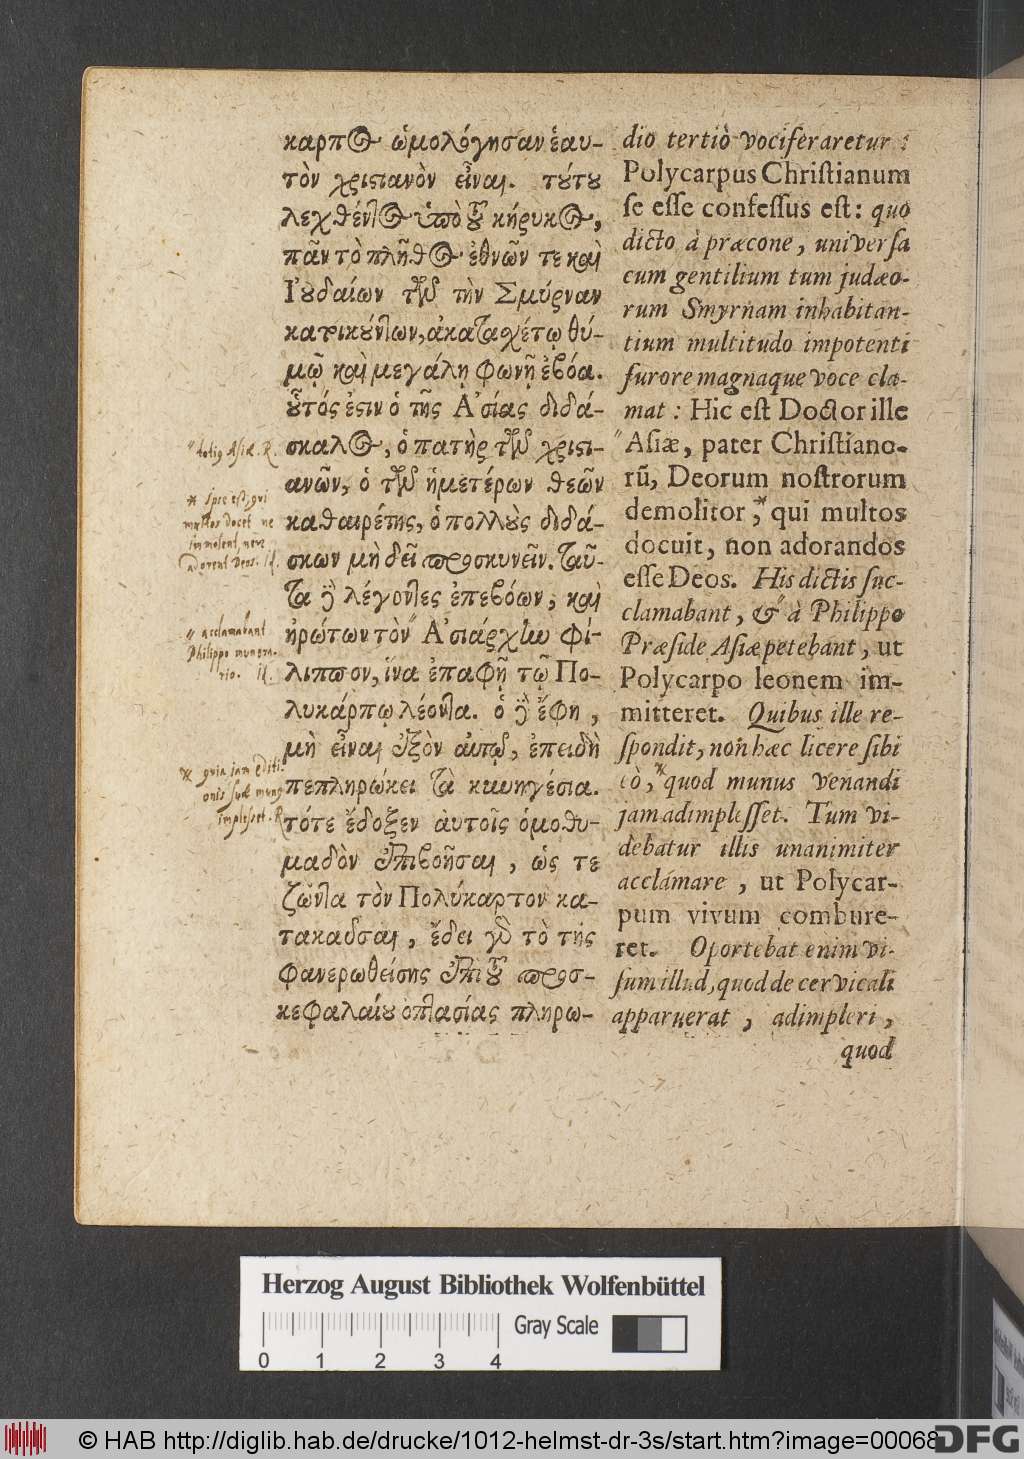 καρπος ὡμολόγησαν ἑαυ-
τὸν χριστιανὸν εἶναι. τούτου
λεχθέντος ὑπὸ τοῦ κήρυκος,
πᾶν τὸ πλῆθος ἐθνῶν τε καὶ
Ἰουδαίων τῶν τὴν Σμύρναν
κατοικούντων, ἀκατασχέτῳ θύ-
μῷ καὶ μεγάλῃ φωνῇ ἐβόα.
οὗτός ἐστιν ὁ τῆς Ἀσίας διδά-
σκαλος, ὁ πατὴρ τῶν χριστι-
ανῶν, ὁ τῶν ἡμετέρων θεῶν
καθαιρέτης, ὁ πολλοὺς διδά-
σκων μὴ δεῖ προσκυνεῖν. ταῦ-
τα δὲ λέγοντες ἐπεβόων, καὶ
ἠρώτων τὸν Ἀσιάρχην Φί-
λιππον, ἵνα ἐπαφῇ τῷ Πο-
λυκάρπῳ λέοντα. ὁ δὲ ἔφη,
μὴ εἶναι ἐξὸν αὐτῷ, ἐπειδὴ
πεπληρώκει τὰ κυνηγέσια.
τότε ἔδοξεν αὐτοῖς ὁμοθυ-
μαδὸν ἐπιβοῆσαι, ὡς τε
ζῶντα τὸν Πολύκαρτον κα-
τακαῦσαι, ἔδει γὰρ τὸ τῆς
φανερωθείσης ἐπὶ τοῦ προσ-
κεφαλαίου ὀπτασίας πληρω-
" totiq Asiæ. R.
* Ipse est, qui
multos docet ne
immolent, neve
adorent Deos. Id.
" acclamabant
Philippo munera-
rio. Id.
* quia jam editi-
onis suæ munq
implesset. R
dio tertiò vociferaretur:
Polycarpus Christianum
se esse confessus est: quo
dicto à præcone, universa
cum gentilium tum judæo-
rum Smyrnam inhabitan-
tium multitudo impotenti
furore magnaque voce cla-
mat: Hic est Doctor ille
" Asiæ, pater Christiano-
rũ, Deorum nostrorum
demolitor,* qui multos
docuit, non adorandos
esse Deos. His dictis suc-
clamabant, &" à Philippo
Præside Asiæ petebant, ut
Polycarpo leonem im-
mitteret. Quibus ille re-
spondit, non hæc licere sibi
eò,* quod munus venandi
jam adimplesset. Tum vi-
debatur illis unanimiter
acclámare, ut Polycar-
pum vivum combure-
ret. Oportebat enim vi-
sum illud, quod de cervicali
apparuerat, adimpleri,
quod
Herzog August Bibliothek Wolfenbüttel
Gray Scale
0 1 2 3 4
© HAB http://diglib.hab.de/drucke/1012-helmst-dr-3s/start.htm?image=00068
DFG